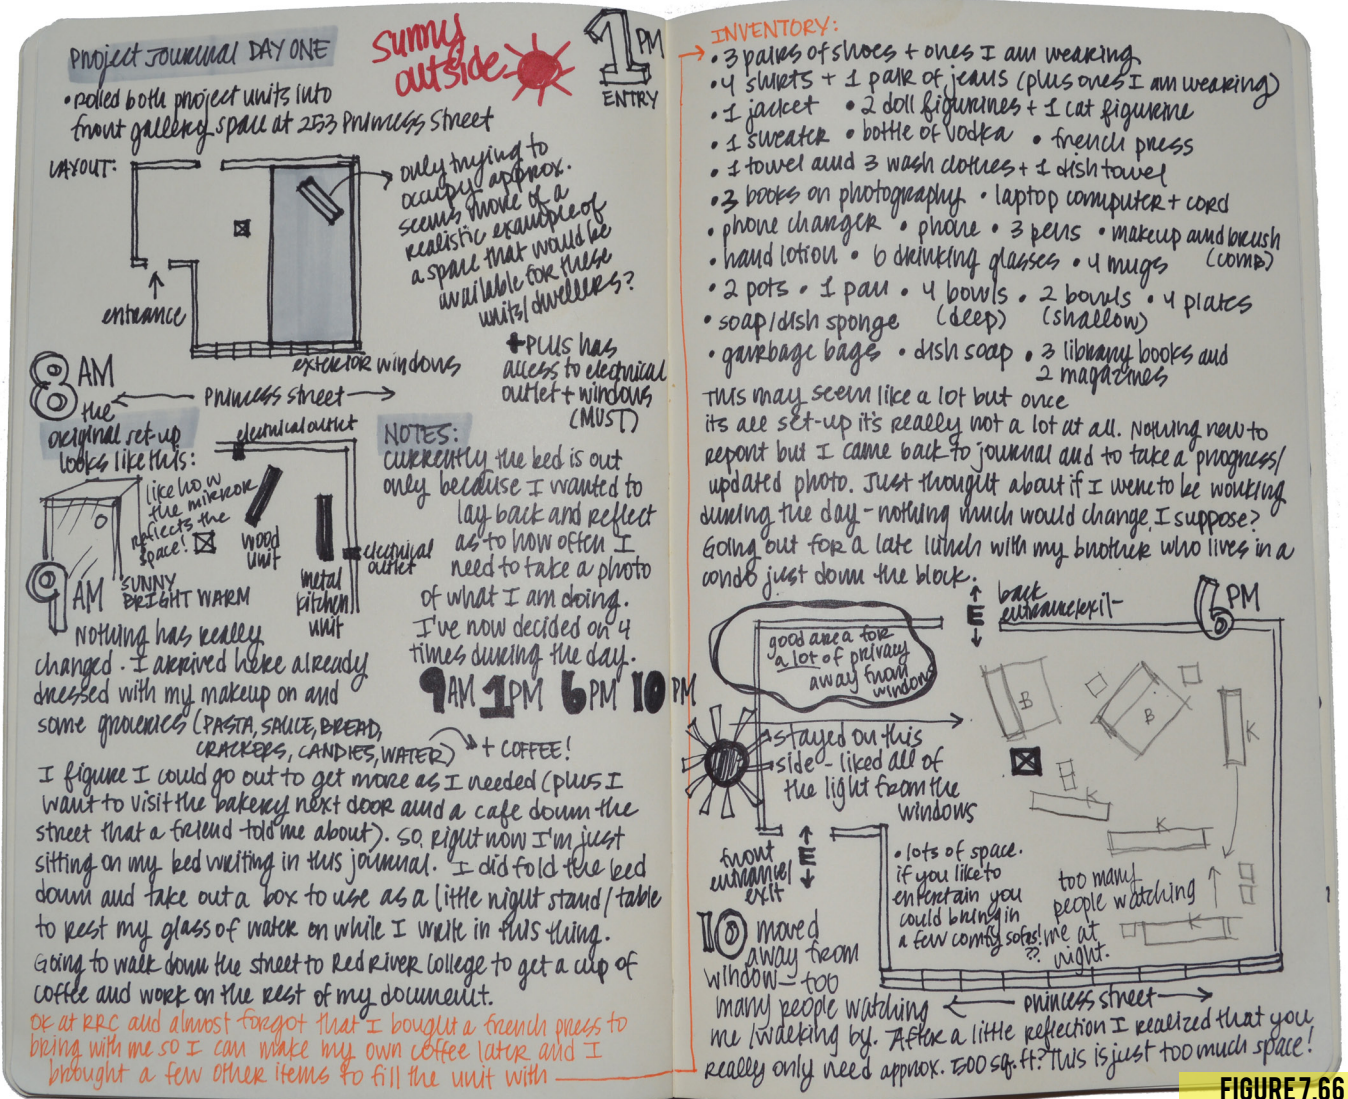 Project Journal DAY ONE
sunny
outside
1 PM
ENTRY
• rolled both project units into
front gallery space at 253 Princess Street
LAYOUT:
entrance
exterior windows
← Princess Street →
only trying to
occupy approx.
seems more of a
realistic example of
a space that would be
available for these
units/dwellers?
+ PLUS has
access to electrical
outlet + windows
(MUST)
8 AM
the
original set-up
looks like this:
electrical outlet
like how
the mirror
reflects the
space!
wood
unit
metal
kitchen
unit
electrical
outlet
NOTES:
currently the bed is out
only because I wanted to
lay back and reflect
as to how often I
need to take a photo
of what I am doing.
I've now decided on 4
times during the day.
9AM 1PM 6PM 10PM
9 AM SUNNY
BRIGHT WARM
Nothing has really
changed. I arrived here already
dressed with my makeup on and
some groceries (PASTA, SAUCE, BREAD,
CRACKERS, CANDIES, WATER) + COFFEE!
I figure I could go out to get more as I needed (plus I
want to visit the bakery next door and a cafe down the
street that a friend told me about). So, right now I'm just
sitting on my bed writing in this journal. I did fold the bed
down and take out a box to use as a little night stand/table
to rest my glass of water on while I write in this thing.
Going to walk down the street to Red River College to get a cup of
coffee and work on the rest of my document.
OK at RRC and almost forgot that I bought a french press to
bring with me so I can make my own coffee later and I
brought a few other items to fill the unit with
INVENTORY:
• 3 pairs of shoes + ones I am wearing
• 4 shirts + 1 pair of jeans (plus ones I am wearing)
• 1 jacket • 2 doll figurines + 1 cat figurine
• 1 sweater • bottle of vodka • french press
• 1 towel and 3 wash clothes + 1 dish towel
• 3 books on photography • laptop computer + cord
• phone charger • phone • 3 pens • makeup and brush
• hand lotion • 6 drinking glasses • 4 mugs (comb)
• 2 pots • 1 pan • 4 bowls • 2 bowls • 4 plates
• soap/dish sponge (deep) (shallow)
• garbage bags • dish soap • 3 library books and
2 magazines
This may seem like a lot but once
its all set-up it's really not a lot at all. Nothing new to
report but I came back to journal and to take a progress/
updated photo. Just thought about if I were to be working
during the day - nothing much would change, I suppose?
Going out for a late lunch with my brother who lives in a
condo just down the block.
6 PM
E
back
entrance/exit
good area for
a lot of privacy
away from
window
stayed on this
side - liked all of
the light from the
windows
B
B
K
K
K
K
front
entrance/
exit
E
• lots of space.
if you like to
entertain you
could bring in
a few comfy sofas!
??
too many
people watching
me at
night.
← Princess Street →
10 moved
away from
window - too
many people watching
me/walking by. After a little reflection I realized that you
really only need approx. 500 sq. ft? This is just too much space!
FIGURE 7.66